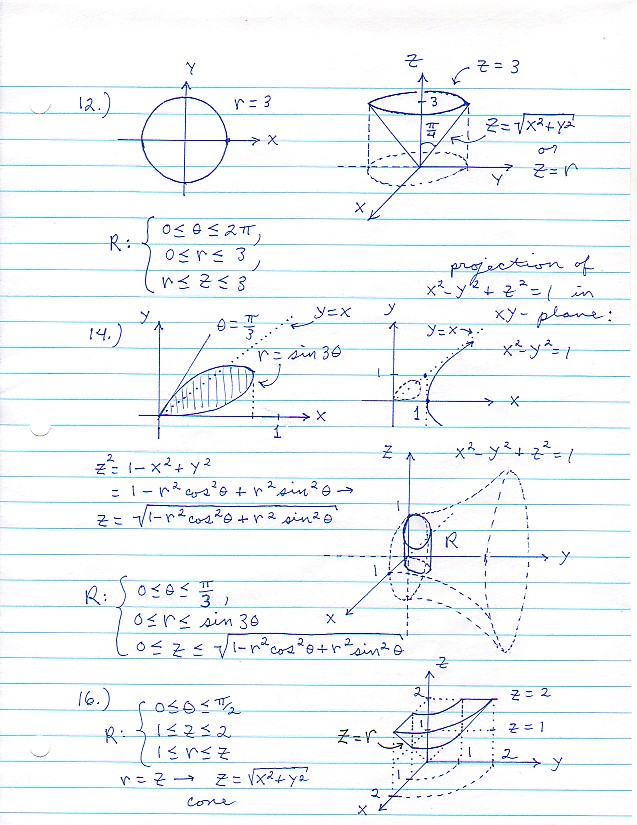 12.)
Y
r = 3
X
Z
z = 3
3
π/4
z = √(x²+y²)
or
z = r
Y
X
R: { 0 ≤ θ ≤ 2π,
0 ≤ r ≤ 3,
r ≤ z ≤ 3
projection of
x²-y²+z²=1 in
xy-plane:
14.)
y
θ = π/3
y=x
r = sin 3θ
1
X
y
y=x
x²-y²=1
1
1
X
z² = 1-x²+y²
= 1-r²cos²θ+r²sin²θ →
z = √(1-r²cos²θ+r²sin²θ)
Z
x²-y²+z²=1
1
R
1
y
X
R: { 0 ≤ θ ≤ π/3,
0 ≤ r ≤ sin 3θ
0 ≤ z ≤ √(1-r²cos²θ+r²sin²θ)
16.)
R: { 0 ≤ θ ≤ π/2
1 ≤ z ≤ 2
1 ≤ r ≤ z
r = z → z = √(x²+y²)
cone
z
2
z = 2
1
z = 1
z=r
1
2
y
1
2
X